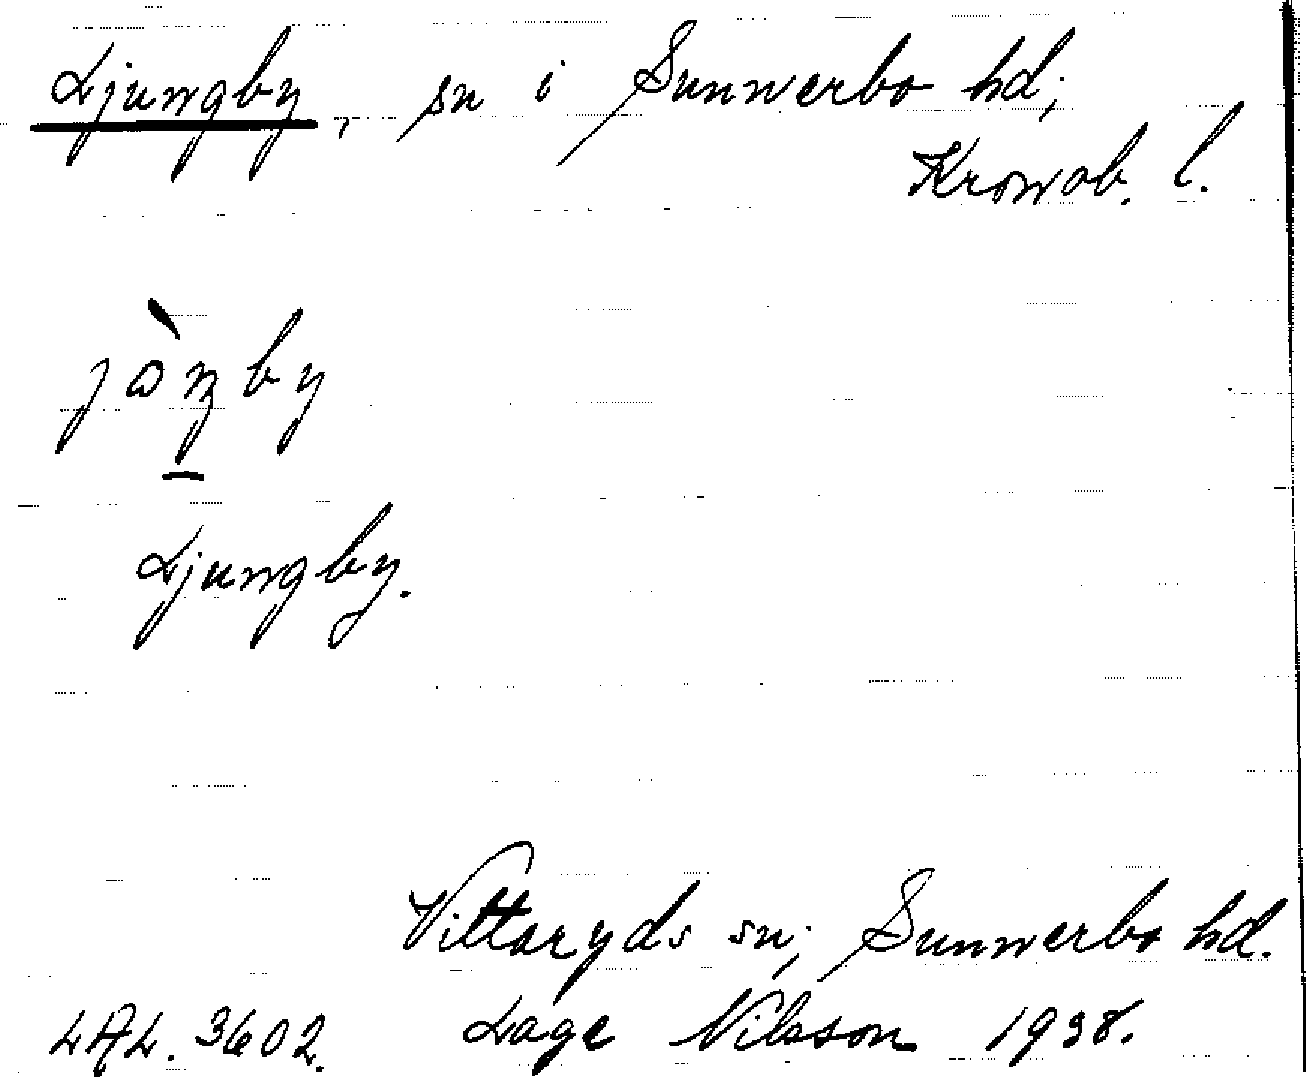 Ljungby, sn i Sunnerbo hd;
Kronob. l.
jòŋby
Ljungby.
Vittaryds sn; Sunnerbo hd.
LAL. 3602. Lage Nilsson 1938.